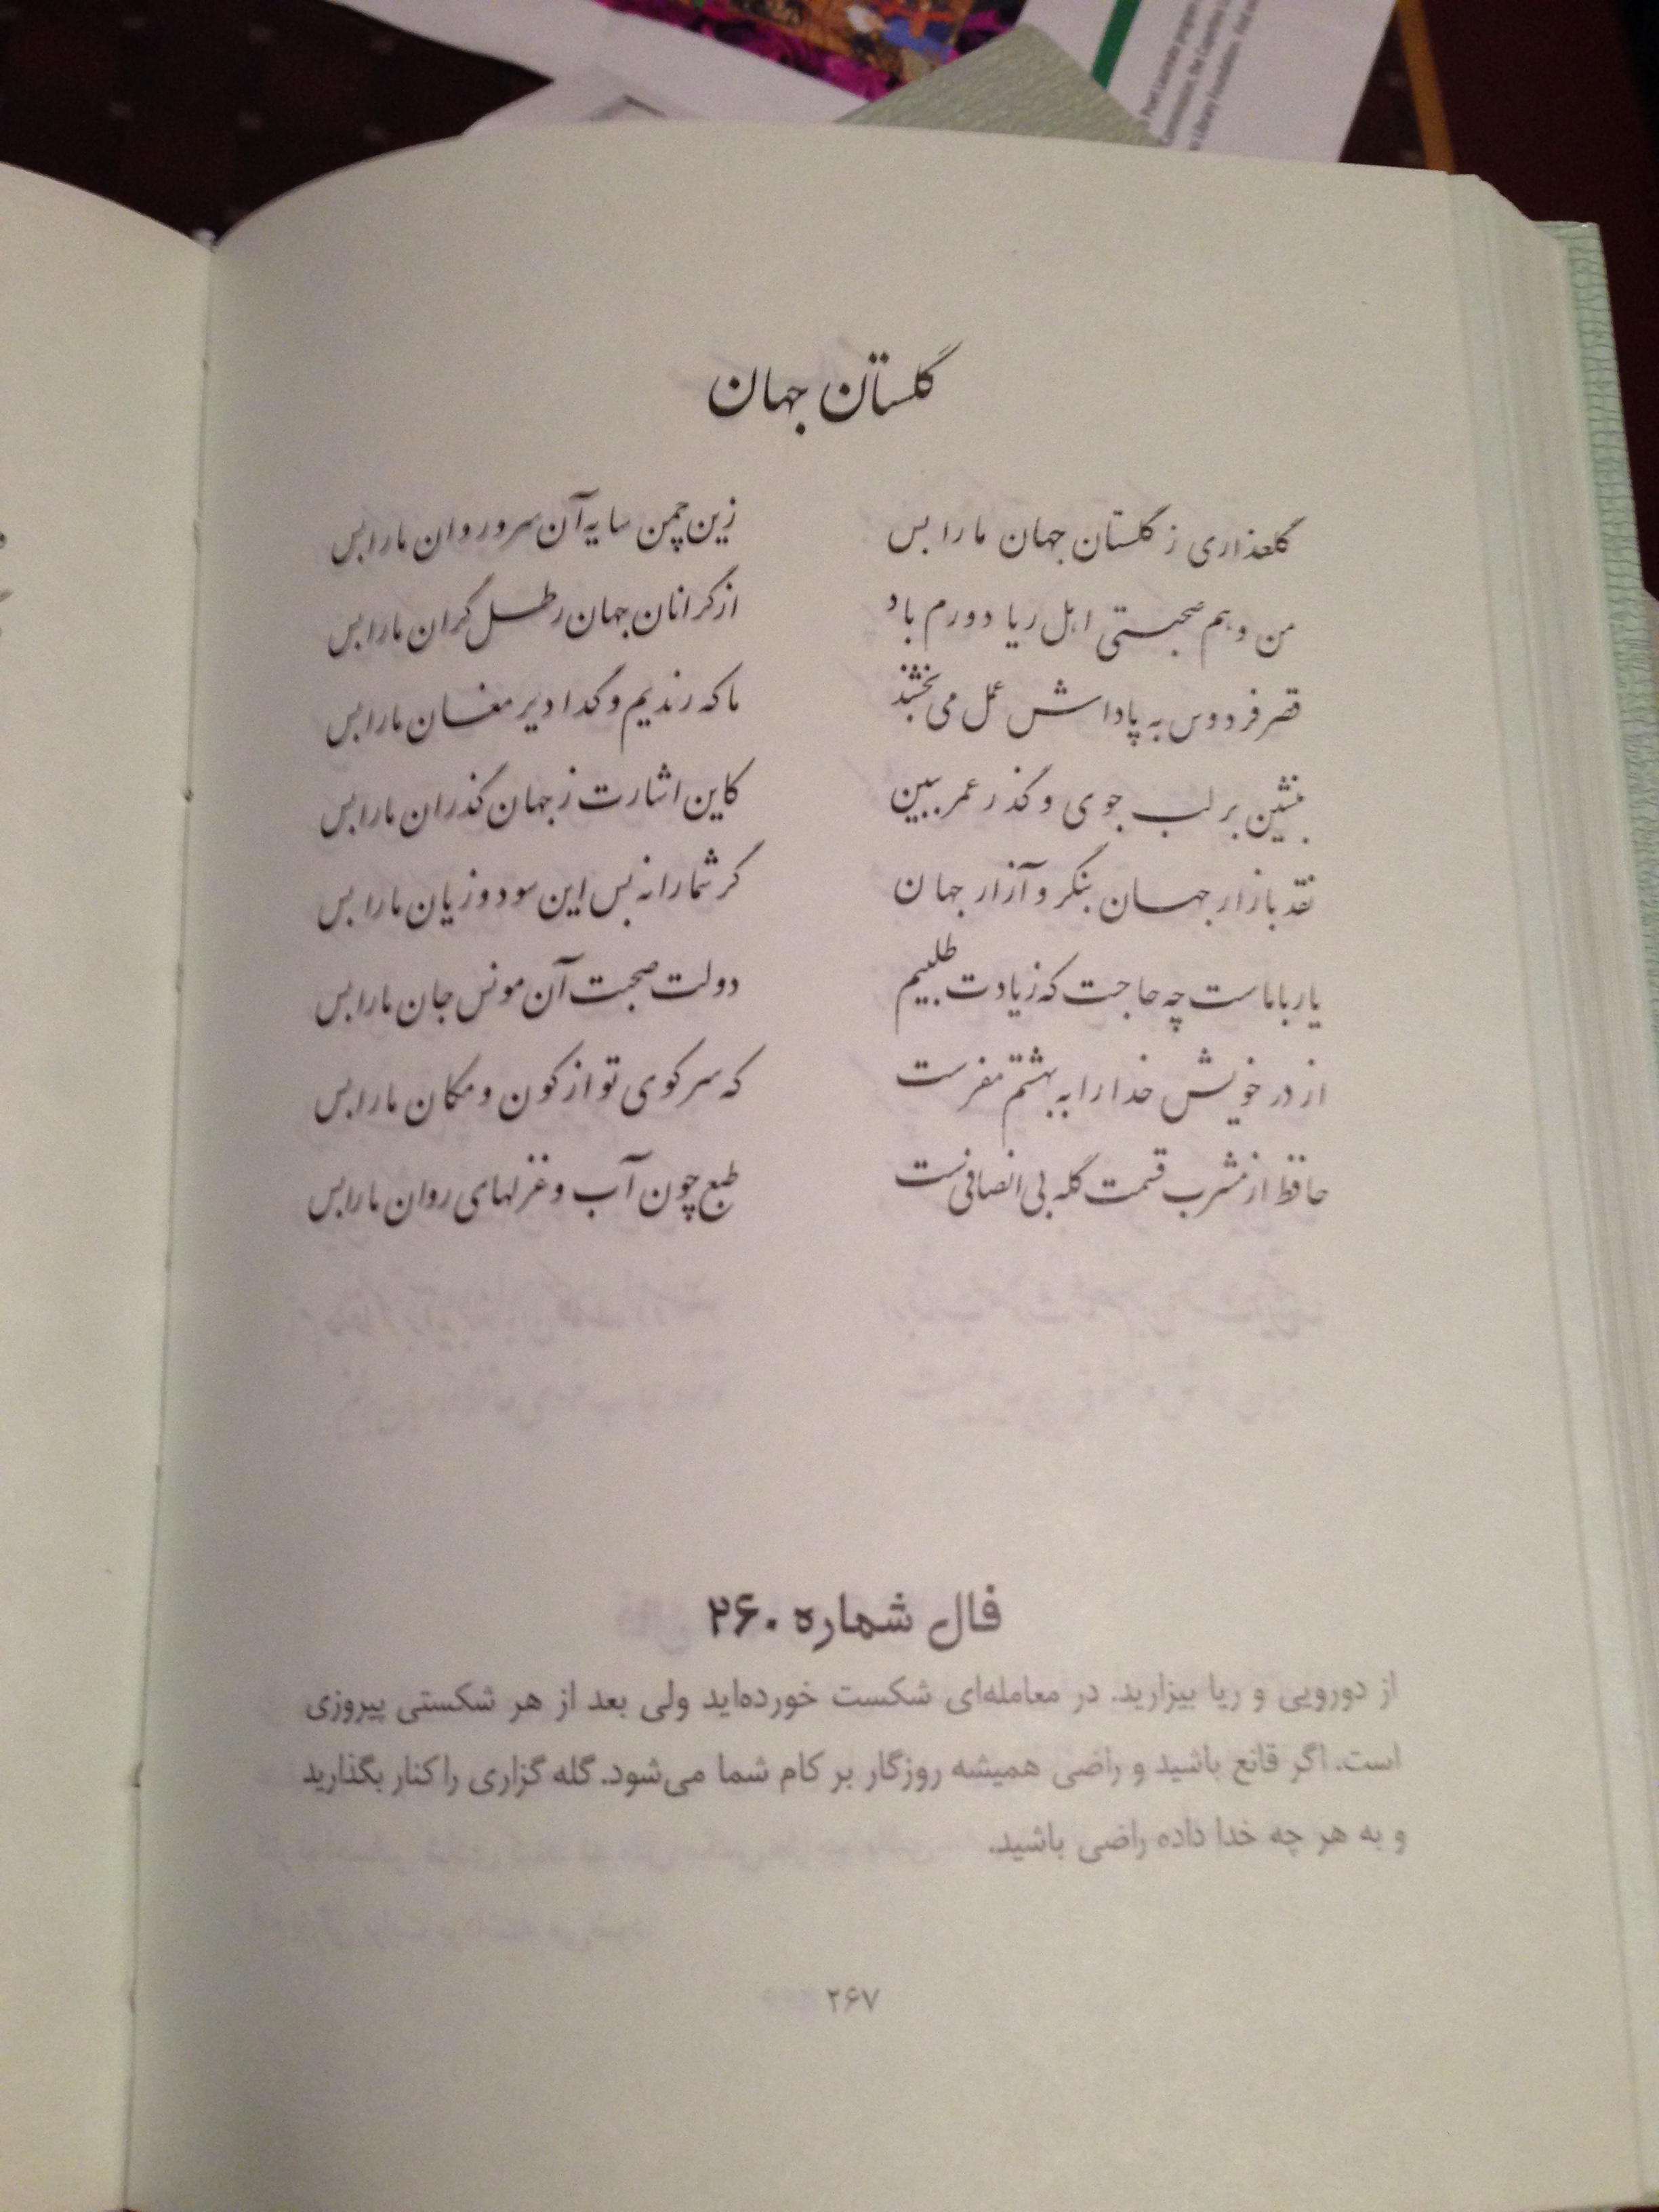 Poet Laureate program
Commission, the Cupertino
Library Foundation. Find
گلستان جهان
گلعذاری ز گلستان جهان ما را بس زین چمن سایه آن سرو روان ما را بس
من و هم صحبتی اهل ریا دورم باد از گرانان جهان رطل گران ما را بس
قصر فردوس به پاداش عمل می بخشند ما که رندیم و گدا دیر مغان ما را بس
بنشین بر لب جوی و گذر عمر ببین کاین اشارت ز جهان گذران ما را بس
نقد بازار جهان بنگر و آزار جهان گر شما را نه بس این سود و زیان ما را بس
یار با ماست چه حاجت که زیادت طلبیم دولت صحبت آن مونس جان ما را بس
از در خویش خدا را به بهشتم مفرست که سر کوی تو از کون و مکان ما را بس
حافظ از مشرب قسمت گله بی انصافیست طبع چون آب و غزلهای روان ما را بس
فال شماره ۲۶۰
از دورویی و ریا بیزارید. در معامله‌ای شکست خورده‌اید ولی بعد از هر شکستی پیروزی
است. اگر قانع باشید و راضی همیشه روزگار بر کام شما می‌شود. گله گزاری را کنار بگذارید
و به هر چه خدا داده راضی باشید.
۲۶۷